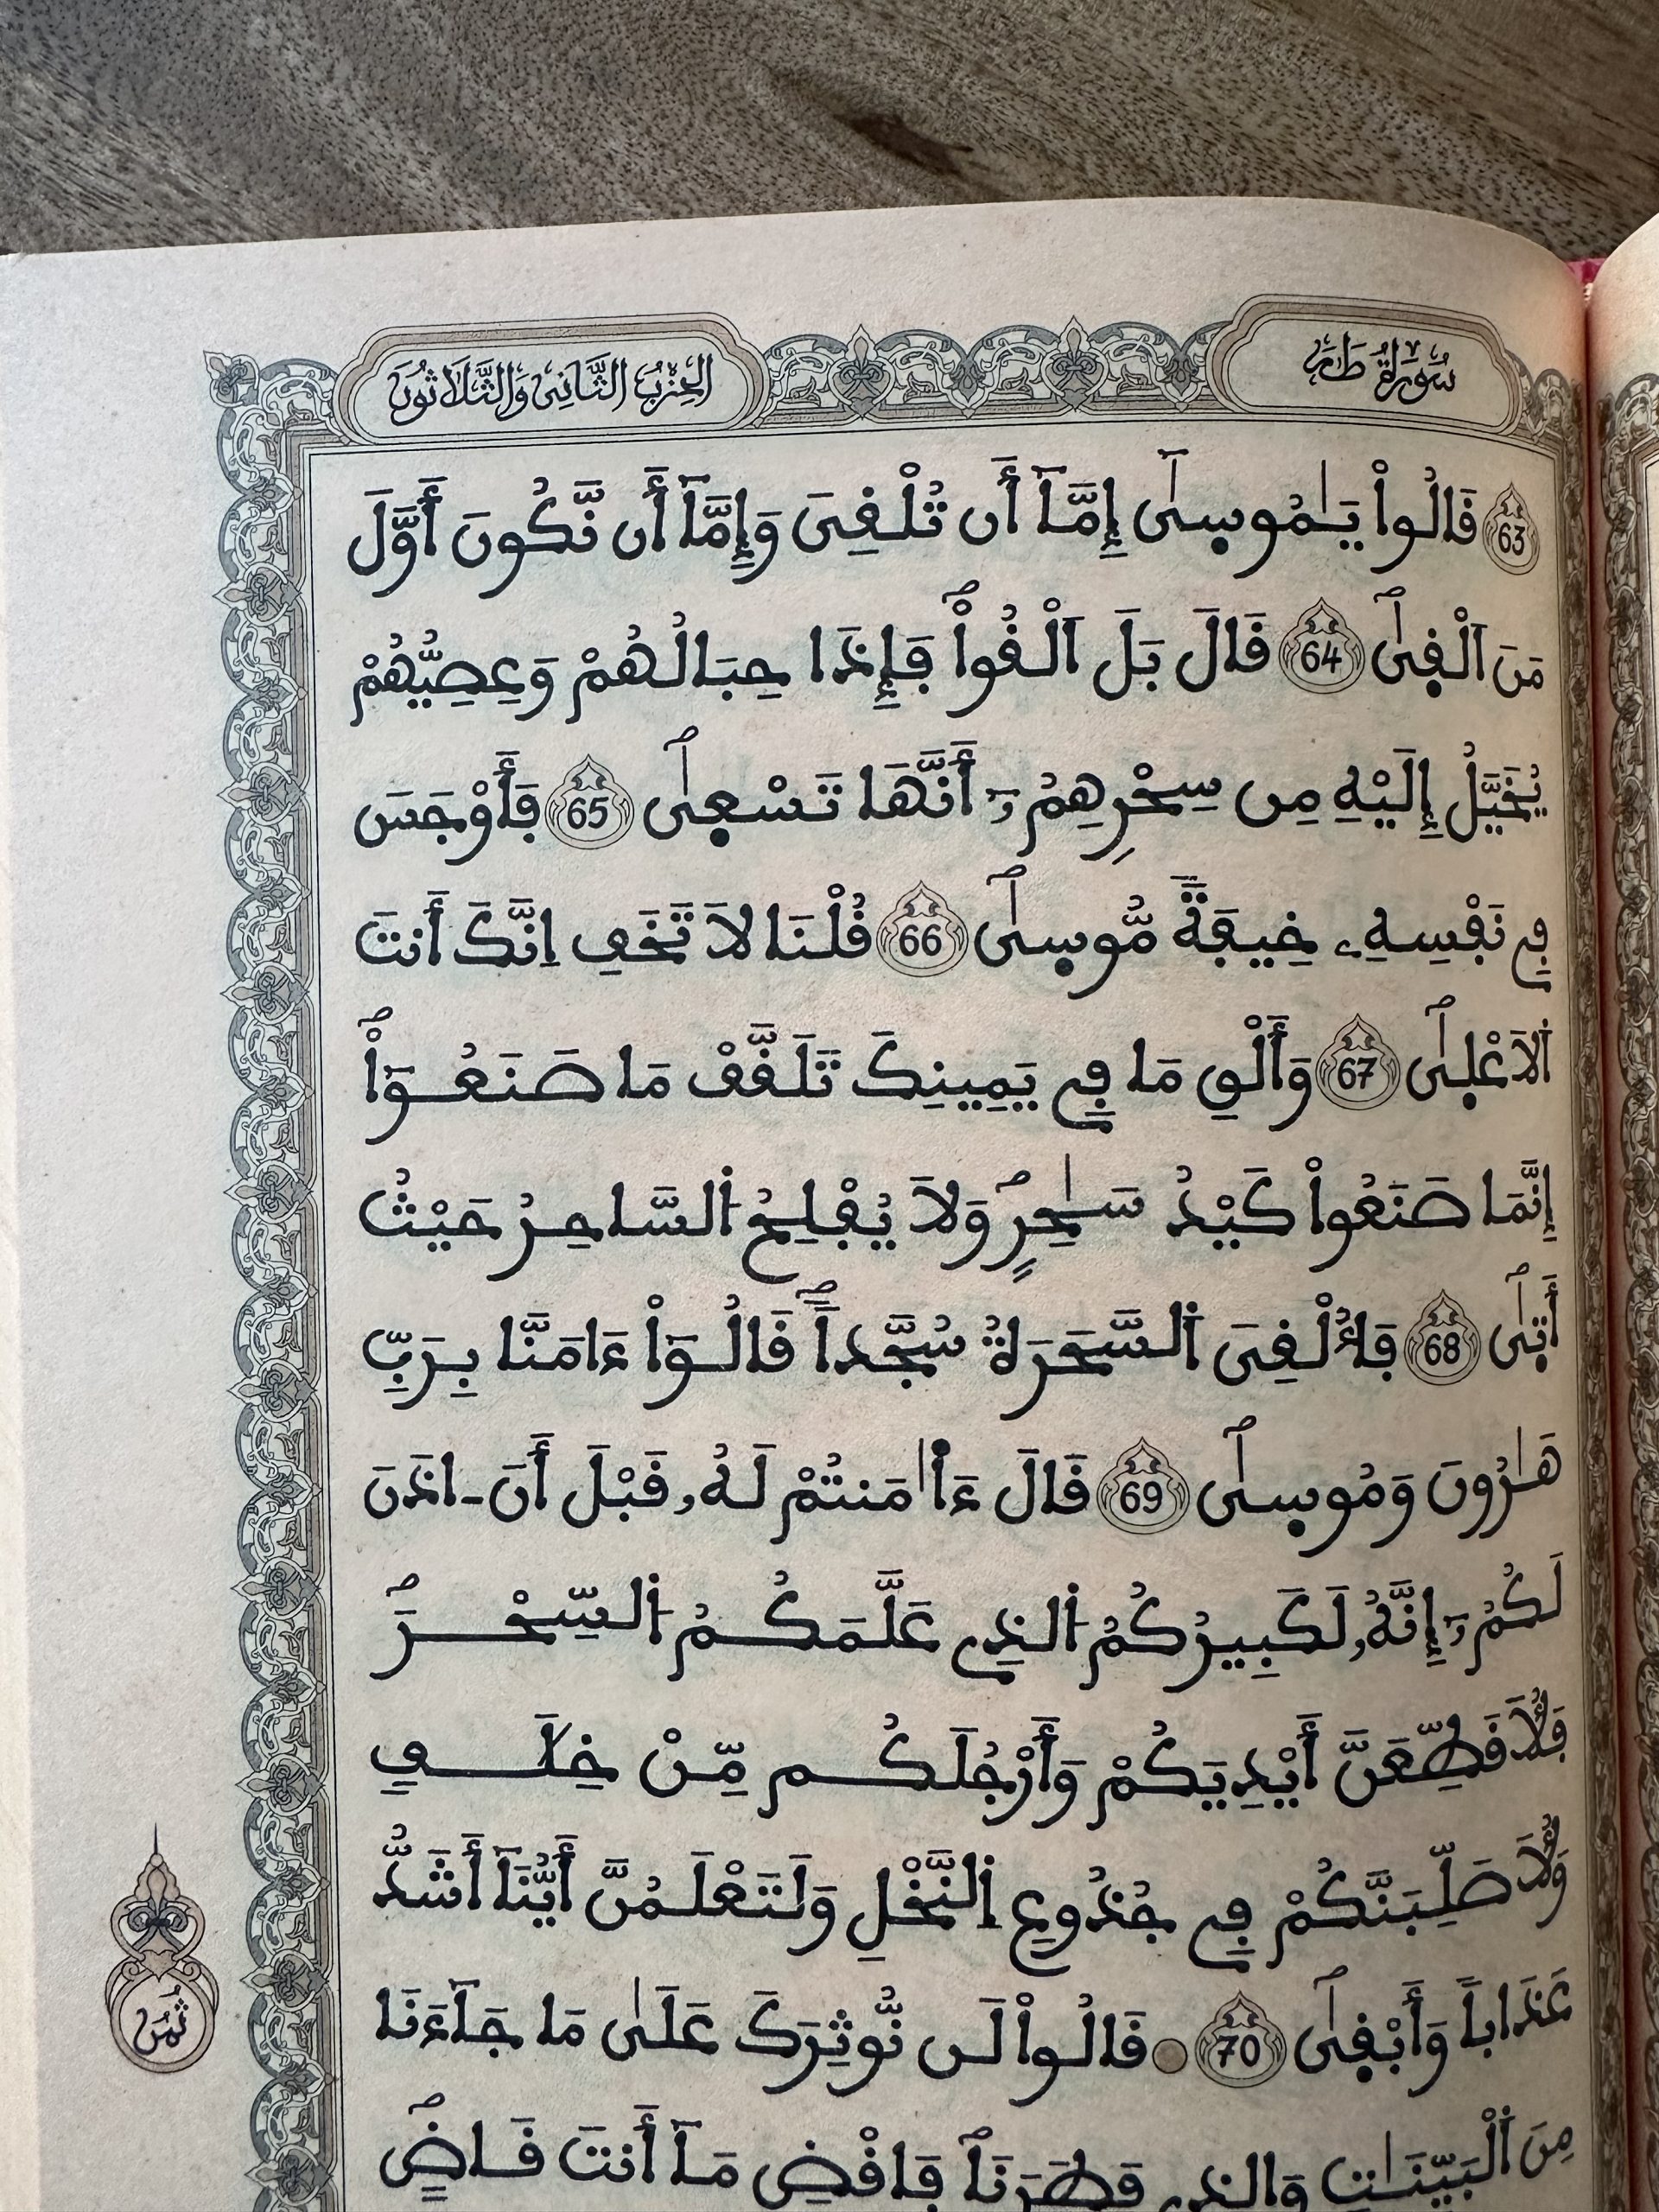 سُورَةُ طَهَ
الحِزْبُ الثَّانِي وَالثَّلَاثُونَ
63 قَالُواْ يَٰمُوسۭيٰٓ إِمَّآ أَن تُلْقِيَ وَإِمَّآ أَن نَّكُونَ أَوَّلَ
مَنَ اَلْقۭيٰۖ 64 قَالَ بَلَ اَلْقُواْۖ فَإِذَا حِبَالُهُمْ وَعِصِيُّهُمْ
يُخَيَّلُ إِلَيْهِ مِن سِحْرِهِمُۥٓ أَنَّهَا تَسْعۭيٰۖ 65 فَأَوْجَسَ
فِے نَفْسِهِۦ خِيفَةٗ مُّوسۭيٰۖ 66 قُلْنَا لَا تَخَفِ اِنَّكَ أَنتَ
اَ۬لَاعْلۭيٰۖ 67 وَأَلْقِ مَا فِے يَمِينِكَ تَلَقَّفْ مَا صَنَعُوٓاْۖ
إِنَّمَا صَنَعُواْ كَيْدُ سَٰحِرٖۖ وَلَا يُفْلِحُ اُ۬لسَّاحِرُ حَيْثُ
أَتۭيٰۖ 68 فَأُلْقِيَ اَ۬لسَّحَرَةُ سُجَّداٗۖ قَالُوٓاْ ءَامَنَّا بِرَبِّ
هَٰرُونَ وَمُوسۭيٰۖ 69 قَالَ ءَا۬مَنتُمْ لَهُۥ قَبْلَ أَنَ اٰذَنَ
لَكُمُۥٓ إِنَّهُۥ لَكَبِيرُكُمُ اُ۬لذِے عَلَّمَكُمُ اُ۬لسِّحْرَۖ
فَلَأُقَطِّعَنَّ أَيْدِيَكُمْ وَأَرْجُلَكُم مِّنْ خِلَٰفٖ
وَلَأُصَلِّبَنَّكُمْ فِے جُذُوعِ اِ۬لنَّخْلِ وَلَتَعْلَمُنَّ أَيُّنَآ أَشَدُّ
عَذَاباٗ وَأَبْقۭيٰۖ 70 قَالُواْ لَن نُّوثِرَكَ عَلَىٰ مَا جَآءَنَا
ثُمُن
مِنَ اَ۬لْبَيِّنَٰتِ وَالذِے فَطَرَنَاۖ فَاقْضِ مَآ أَنتَ قَاضٍۖ